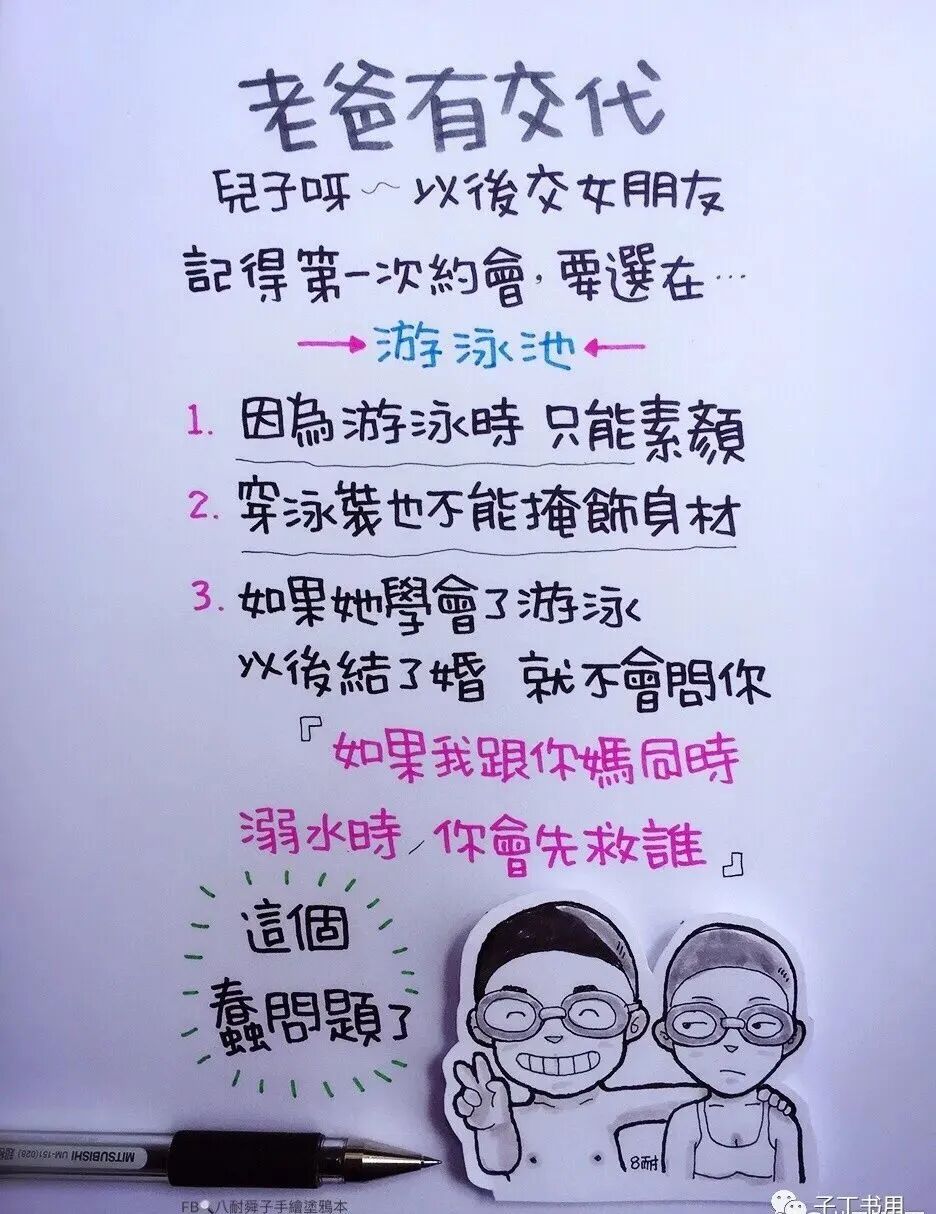 老爸有交代
兒子呀~以後交女朋友
記得第一次約會,要選在…
→游泳池←
1. 因為游泳時 只能素顏
2. 穿泳裝也不能掩飾身材
3. 如果她學會了游泳
以後結了婚 就不會問你
『如果我跟你媽同時
溺水時,你會先救誰』
這個
蠢問題了
8耐
MITSUBISHI UM-151(028)
FB 八耐舜子手繪塗鴉本